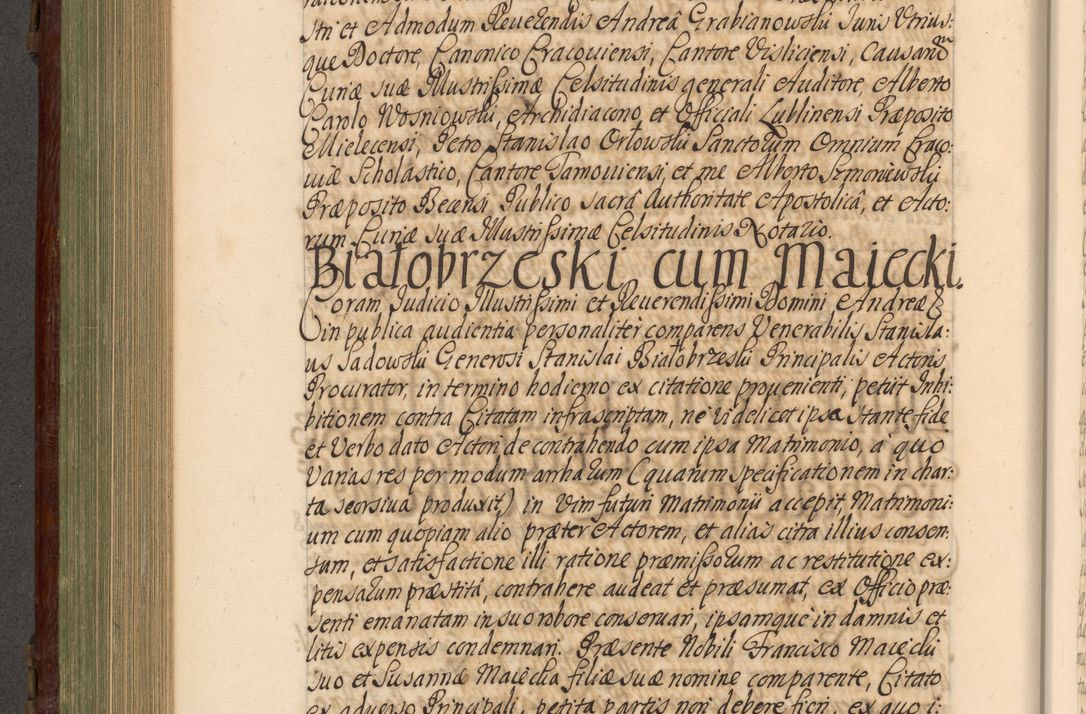 stri et Admodum Reverendis Andreâ Grabianowski Juris Utrius:
que Doctore, Canonico Cracoviensi, Cantore Visliciensi, Causarũ
Curiæ suæ Illustrissimæ Celsitudinis generali Auditore, Alberto
Carolo Wosniowski, Archidiacono et Officiali Lublinensi Præposito
Mielecensi, Petro Stanislao Orłowski Sanctorum Omnium Craco:
viæ Scholastico, Cantore Tarnoviensi, et me Alberto Szmoniewski
Præposito Becensi Publico sacrâ Authoritate Apostolicâ, et Acto:
rum Curiæ suæ Illustrissimæ Celsitudinis Notario.
Białobrzeski cum Maiecki.
Coram Judicio Illustrissimi et Reverendissimi Domini Andreæ Z
in publica audientia personaliter comparens Venerabilis Stanisla:
us Sadowski Generosi Stanislai Białobrzeski Principalis Actoris
Procurator, in termino hodierno ex citatione provenienti, petiit Inhi:
bitionem contra Citatam infrascriptam, ne videlicet ipsa stante fide
et Verbo dato Actori de contrahendo cum ipsa Matrimonio, a quo
Varias res per modum arrharum (quarum specificationem in char:
ta seorsiva produxit) in Vim futuri Matrimonii accepit, Matrimoni:
um cum quopiam alio præter Actorem, et alias citra illius consen:
sum, et satisfactione illi ratione præmissorum ac restitutione ex:
pensarum præstitâ, contrahere audeat et præsumat, ex Officio præ:
senti emanatam in suo robore conservari, ipsamque in damnis et
litis expensis condemnari. Præsente Nobili Francisco Maiecki
suo et Susannæ Maiecka filiæ suæ nomine comparente, Citato
ex adverso Principali, petita partis non debere fieri, ex quo i: